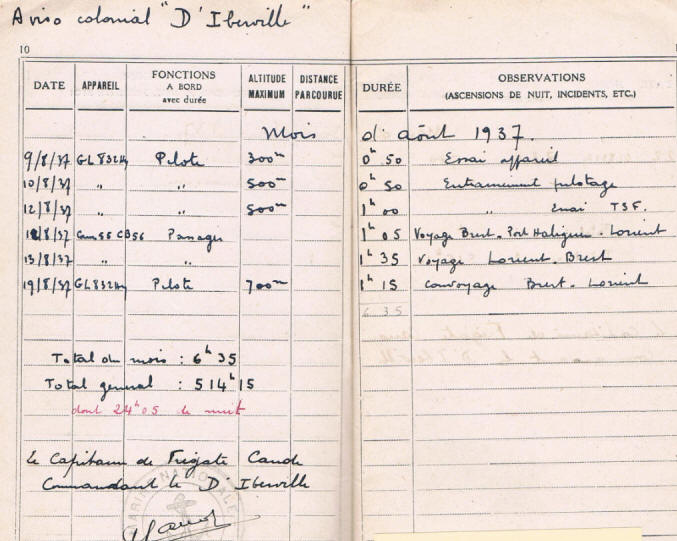 Aviso colonial "D'Iberville"
10
DATE APPAREIL FONCTIONS A BORD avec durée ALTITUDE MAXIMUM DISTANCE PARCOURUE DURÉE OBSERVATIONS (ASCENSIONS DE NUIT, INCIDENTS, ETC.)
Mois d'août 1937.
9/8/37 GL832Hy Pilote 300m 0h 50 Essai appareil
10/8/37 " " 500m 0h 50 Entrainement pilotage
12/8/37 " " 500m 1h 00 " Essai TSF.
12/8/37 Cams 55 CB56 Passager 1h 05 Voyage Brest. Port Haliguen. Lorient
13/8/37 " " 1h 35 Voyage Lorient. Brest
19/8/37 GL832Hy Pilote 700m 1h 15 Convoyage Brest. Lorient
6 35
Total du mois : 6h 35
Total general : 514h 15
dont 24h05 de nuit
Le Capitaine de Frégate
Commandant le D'Iberville